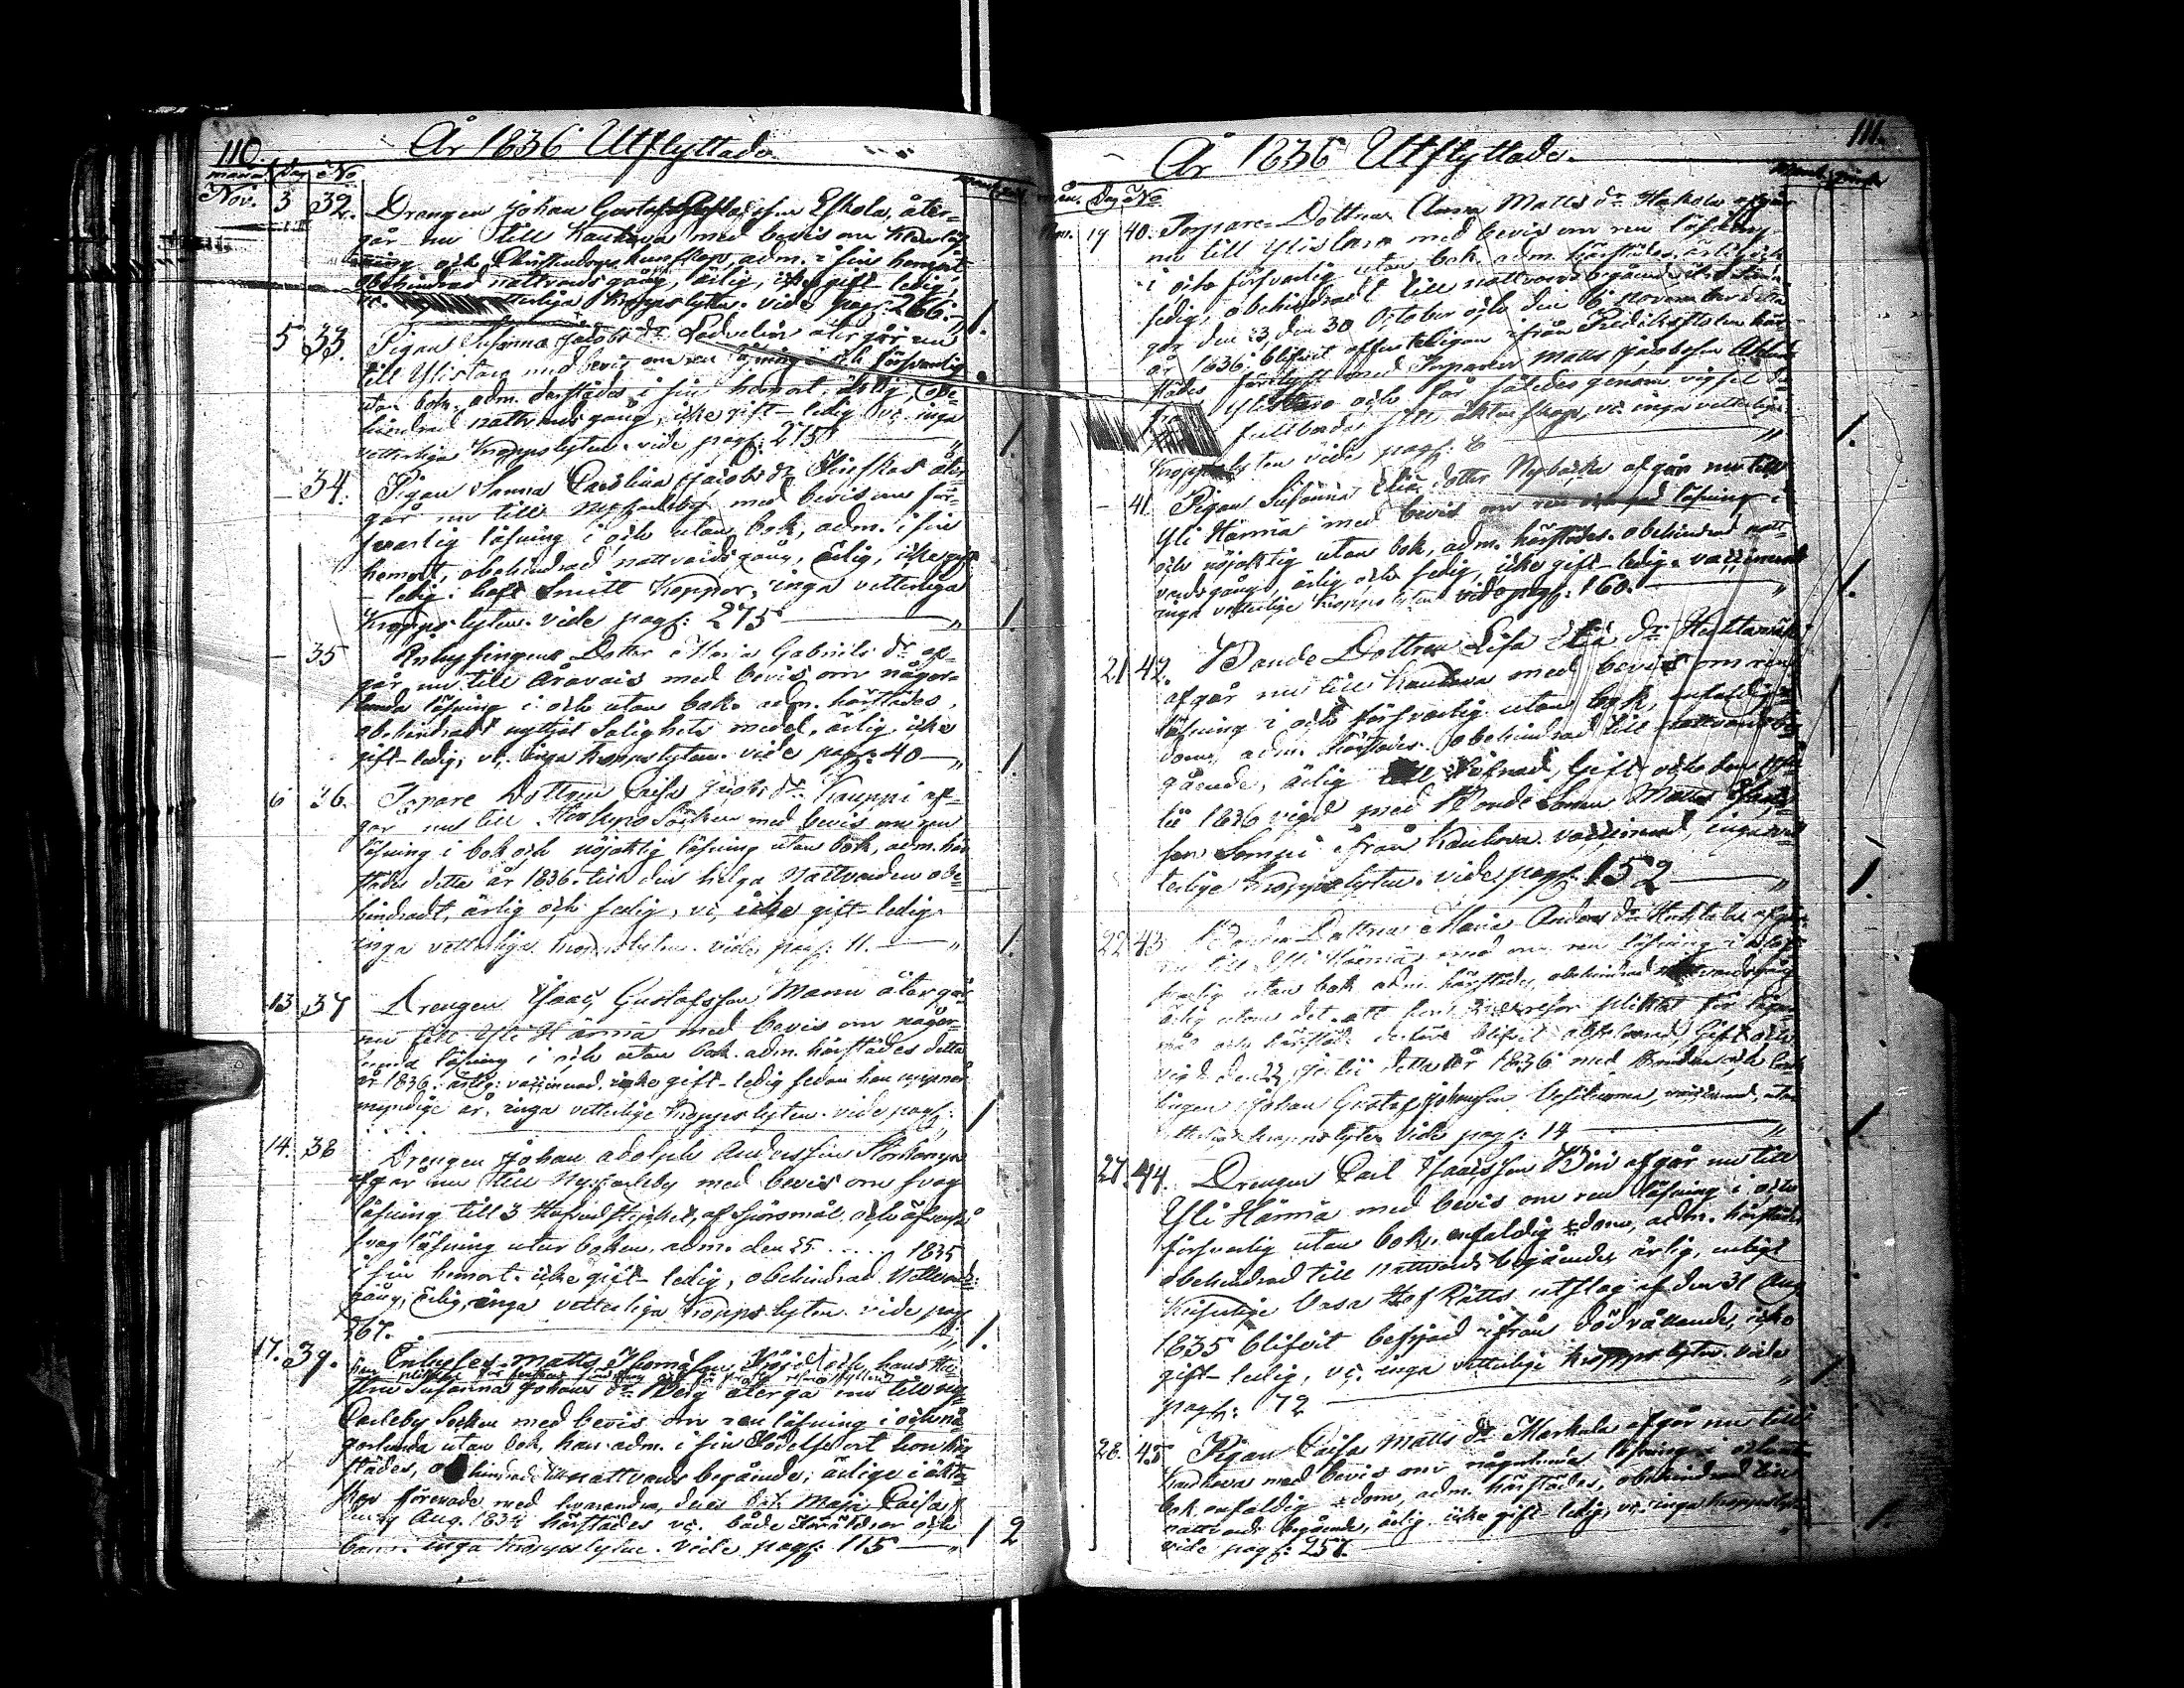 110.
År 1836 Utflyttade
månad Dag No
Nov. 3 32. Drengen Johan Gustaf Eskola, åter-
går nu till Kauhava med bevis om
och Christendoms kunskap, adm. i sin hemort
obehindrad nattvardsgång, ärlig, icke gift - ledig,
vc. vetterliga Kroppslyten. vide pag: 266. - " 1.
5 33. Pigan Susanna Jacobs dr återgår nu
till Ylistaro med bevis om ren läsning i och försvarlig
utan bok, adm. derstädes i sin hemort, ärlig, obe-
hindrad nattvardsgång, icke gift - ledig vc. inga
vetterliga Kroppslyten. vide pag: 275 " 1.
- 34. Pigan Sanna Carolina Jacobs dr åter-
går nu till Nykarleby med bevis om för-
svarlig läsning i och utan bok, adm. i sin
hemort, obehindrad nattvardsgång, ärlig, icke gift
- ledig. haft Smitt Koppor, inga vetterliga
Kroppslyten. vide pag: 275 " 1.
- 35 Dotter Maria Gabriels dr af-
går nu till Oravais med bevis om någor-
lunda läsning i och utan bok. adm. härstädes,
obehindradt nyttjat Salighets medel, ärlig, icke
gift - ledig, vc. inga Kroppslyten. vide pag: 40 - " 1.
6 36. Torpare Dottren Caisa Jacobs dr Kauppi af-
går nu till Storkyro Socken med bevis om ren
läsning i bok och nöjaktig läsning utan bok, adm. här-
städes detta år 1836. till den helga Nattvarden obe-
hindradt, ärlig och fredig, vc, icke gift - ledig.
inga vetterliga Kroppslyten. vide pag: 11. - " 1.
13 37 Drengen Isaac Gustafsson Mannu återgår
nu till Yli Härmä med bevis om någor-
lunda läsning i och utan bok. adm. härstädes detta
år 1836. ärlig: vaccinerad. icke gift - ledig sedan han uppnått
myndige år. inga vetterlige Kroppslyten. vide pag:
" 1
14. 38 Drengen Johan Adolph Andersson
afgår nu till Nykarleby med bevis om svag
läsning till 3 Hufvudstycket, af Spörsmål och äfven så
svag läsning utur boken. adm. den 25 . . . . . 1835
i sin hemort. icke gift - ledig, obehindrad Nattvards-
gång, ärlig, inga vetterliga Kroppslyten. vide pag
267. " 1.
17. 39. Enhyses Matts Thomasson och hans Hu-
stru Susanna Johans dr Berg återgå nu till Ny-
Carleby Socken med bevis om ren läsning i och nå-
gorlunda utan bok, han adm. i sin Födelseort hon här-
städes, obehindrad till nattvards begående; ärlige i äkten-
skap förenade med hvarandra, deras Maja Caisa
Aug. 1834 härstädes vc. både Föräldrar och
barn. inga Kroppslyten. vide pag: 115 - " 1 2
111.
År 1836 Utflyttade.
Mån. Dag No
Nov. 19 40. Torpare-Dottren Anna Matts dr Hakola afgår
nu till Ylistaro med bevis om ren läsning
i och försvarlig utan bok adm. härstädes, ärlig och
fredig, obehindradt till nattvards begående
den 30 October och den 6 November detta
år 1836 blifvit offenteligen ifrån Predikostolen här-
städes förelyst med Torparen Matts Jacobsson
från Ylistaro och får således genom vigsel
fullborda sitt äktenskap, vc. inga vetterliga
Kroppslyten vide pag: 8 " 1.
- 41. Pigan Susanna Eliæ dotter Nybacka afgår nu till
Yli Härmä med bevis om ren läsning i
och nöjaktig utan bok, adm. härstädes. obehindrad natt-
vardsgång, ärlig och fredig, icke gift - ledig. vaccinerad
inga vetterlige Kroppslyten vide pag: 160. " 1.
21 42. Bonde Dottren Lisa Eliæ dr
afgår nu till Kauhava med bevis om ren
läsning i och försvarlig utan bok, enfaldig
dom, adm. härstädes. obehindrad till nattvards be-
gående, ärlig till lefnad, Gift och den
1836 vigd med Bonde Sonen Matts
son Lompi ifrån Kauhava. vaccinerad, inga vet-
terlige Kroppslyten. vide pag: 152 " 1.
22 43 Bonde Dottren Maria Anders dr afgår
nu till Yli Härmä med om ren läsning i och
utan bok adm. härstädes, obehindrad nattvardsgång
ärlig utom det att hon plicktat för
och härstädes blifvit Gift och
vigd den 22 detta år 1836 med Bonden och
Johan Gustaf Johansson vaccinerad, utan
Kroppslyten vide pag: 14 " 1
27. 44. Drengen Carl Isaacsson afgår nu till
Yli Härmä med bevis om ren läsning i och
försvarlig utan bok, enfaldig dom, adm. härstädes
obehindrad till Nattvards begående, ärlig, enligt
Kejserlige Vasa Hof Rätts utslag af den 31 Aug
1835 blifvit befriad ifrån dödvållande, icke
gift - ledig, vc. inga vetterlige Kroppslyten. vide
pag: 72 " 1.
28. 45 Pigan Caisa Matts dr Markkula afgår nu till
Kauhava med bevis om någorlunda läsning i och utan
bok enfaldig dom, adm. härstädes, obehindrad till
nattvards begående, ärlig icke gift - ledig, vc. inga Kroppslyten
vide pag: 257. " 1.